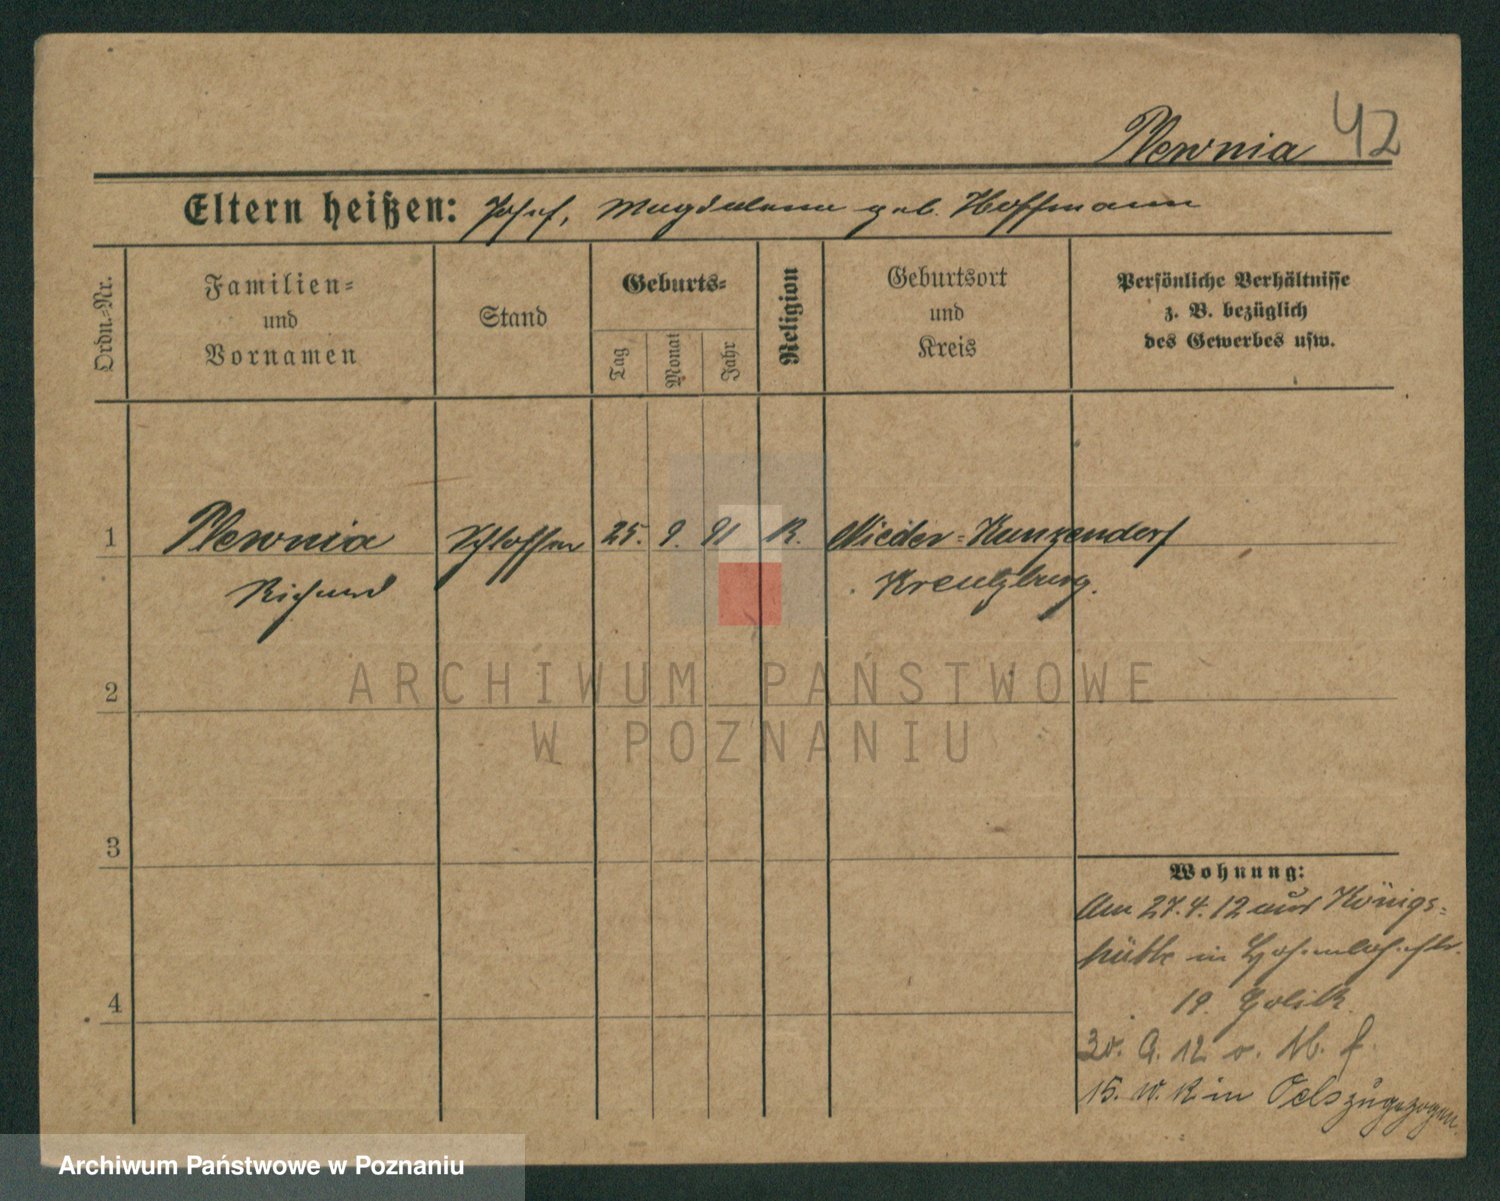 Plewnia 42
Eltern heißen: Josef, Magdalena geb. Hoffmann
Ordn.-Nr.
Familien-
und
Vornamen
Stand
Geburts-
Tag
Monat
Jahr
Religion
Geburtsort
und
Kreis
Persönliche Verhältnisse
z. B. bezüglich
des Gewerbes usw.
1 Plewnia Schlosser 25. 9. 91 K. Nieder-Kunzendorf
Richard Kreutzburg.
2
ARCHIWUM PAŃSTWOWE
W POZNANIU
3
Wohnung:
Am 27.4.12 aus Königs-
hütte in Hohenlohestr.
19. Golik.
4
30. 9. 12 v.
15. 10. 12 in Oels zugezogen.
Archiwum Państwowe w Poznaniu